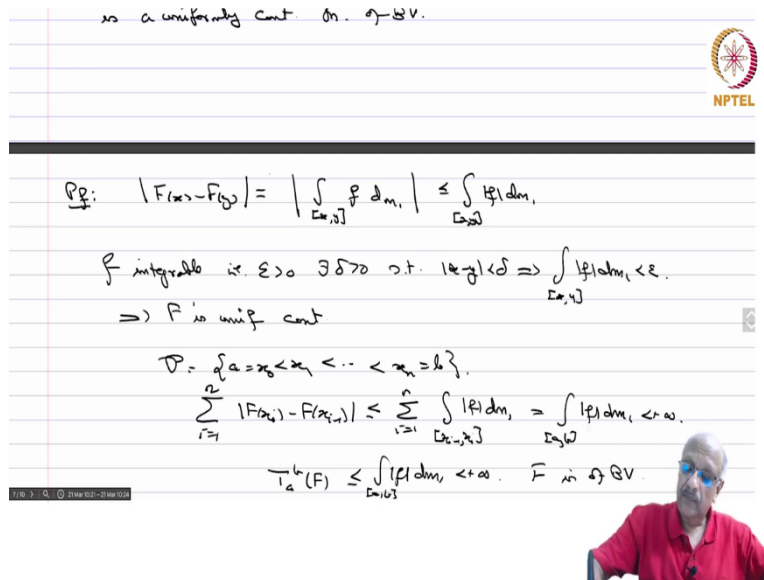 is a uniformly cont. fn. of BV.
NPTEL
Pf: |F(x)-F(y)| = | ∫_{[x,y]} f dm₁ | ≤ ∫_{[x,y]} |f| dm₁
f integrable i.e. ε>0 ∃ δ>0 s.t. |x-y|<δ => ∫_{[x,y]} |f| dm₁ < ε.
=> F is unif cont
P = {a = x₀ < x₁ < ... < xₙ = b}.
∑_{i=1}^{n} |F(x_i) - F(x_{i-1})| ≤ ∑_{i=1}^{n} ∫_{[x_{i-1}, x_i]} |f| dm₁ = ∫_{[a,b]} |f| dm₁ < +∞.
T_a^b(F) ≤ ∫_{[a,b]} |f| dm₁ < +∞. F is of BV
7/10 21 Mar 10:21 - 21 Mar 10:24